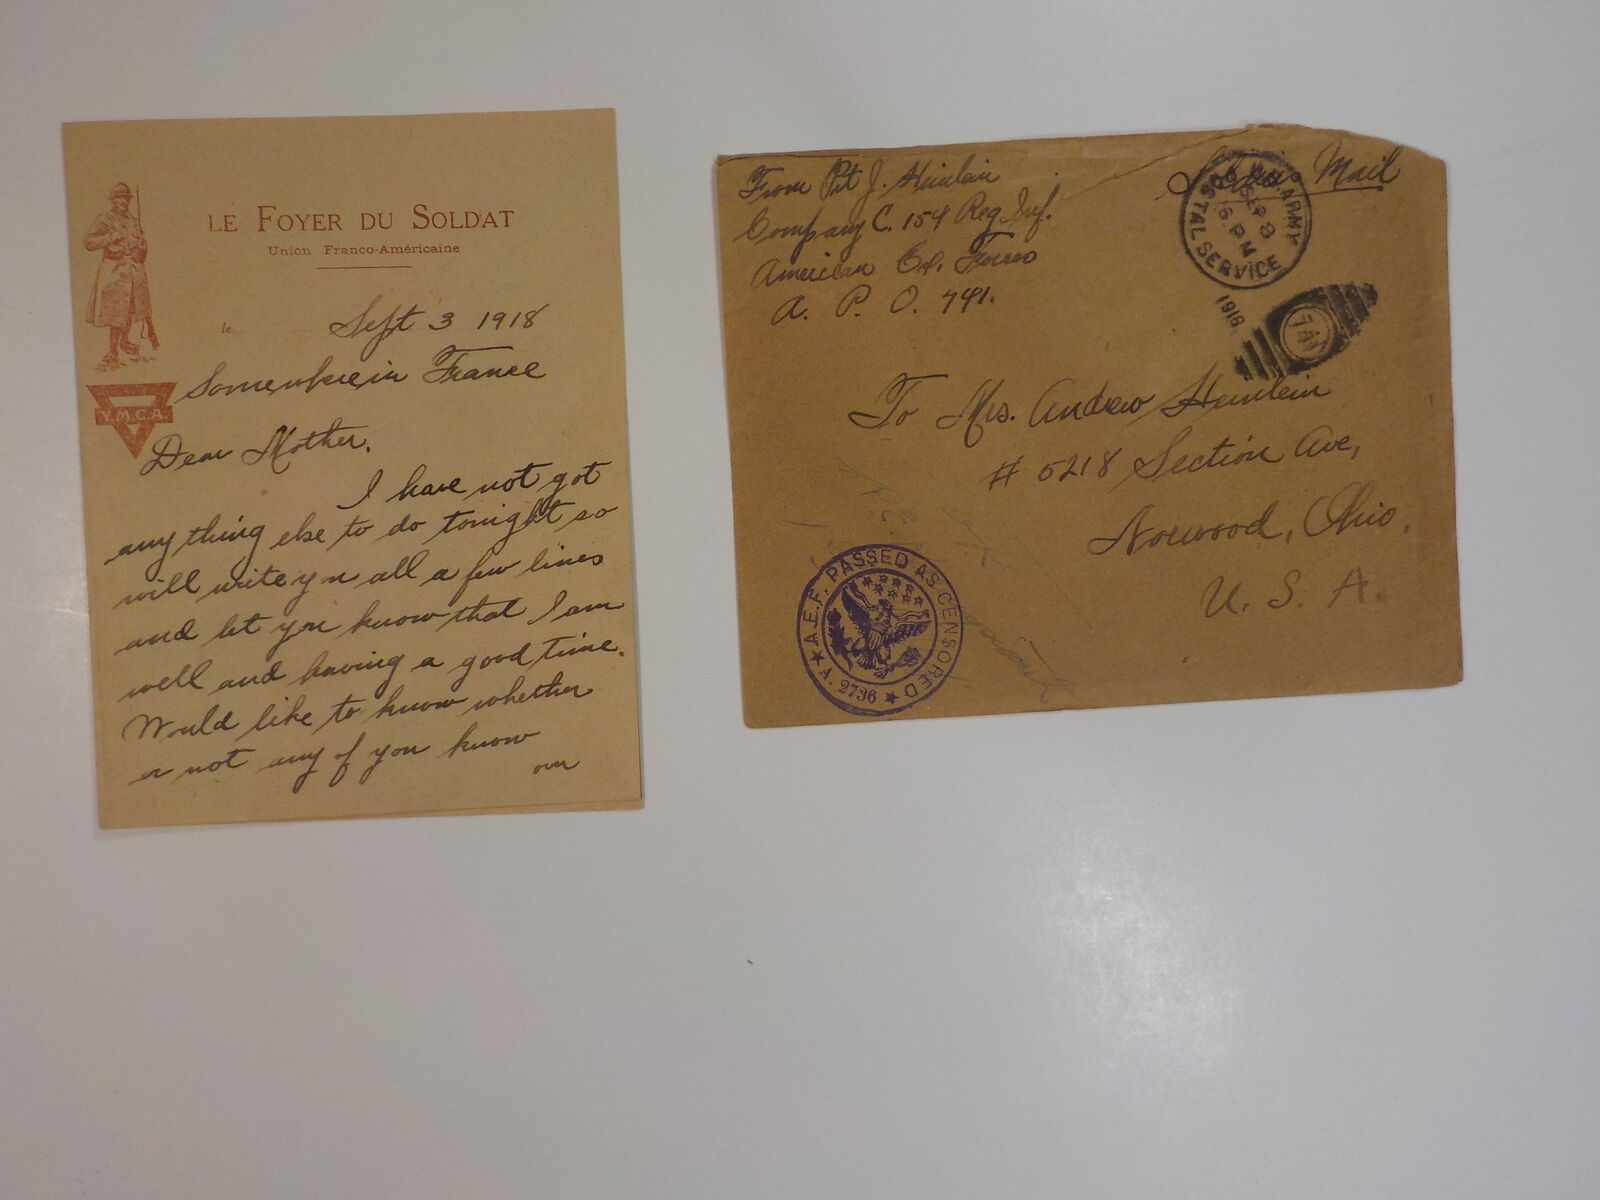 LE FOYER DU SOLDAT
Union Franco-Américaine
le Sept 3 1918
Somewhere in France
Y.M.C.A.
Dear Mother.
I have not got
any thing else to do tonight so
will write yu all a few lines
and let you know that I am
well and having a good time.
Would like to know whether
or not any of you know
over
From Pvt J. Heinlein
Company C. 154 Reg Inf.
American Ex. Forces
A. P. O. 791.
Mail
U.S. ARMY
POSTAL SERVICE
SEP 8
6 PM
1918
To Mrs. Andrew Heinlein
# 5218 Section Ave,
Norwood, Ohio.
U. S. A.
A.E.F. PASSED AS CENSORED
A. 2736